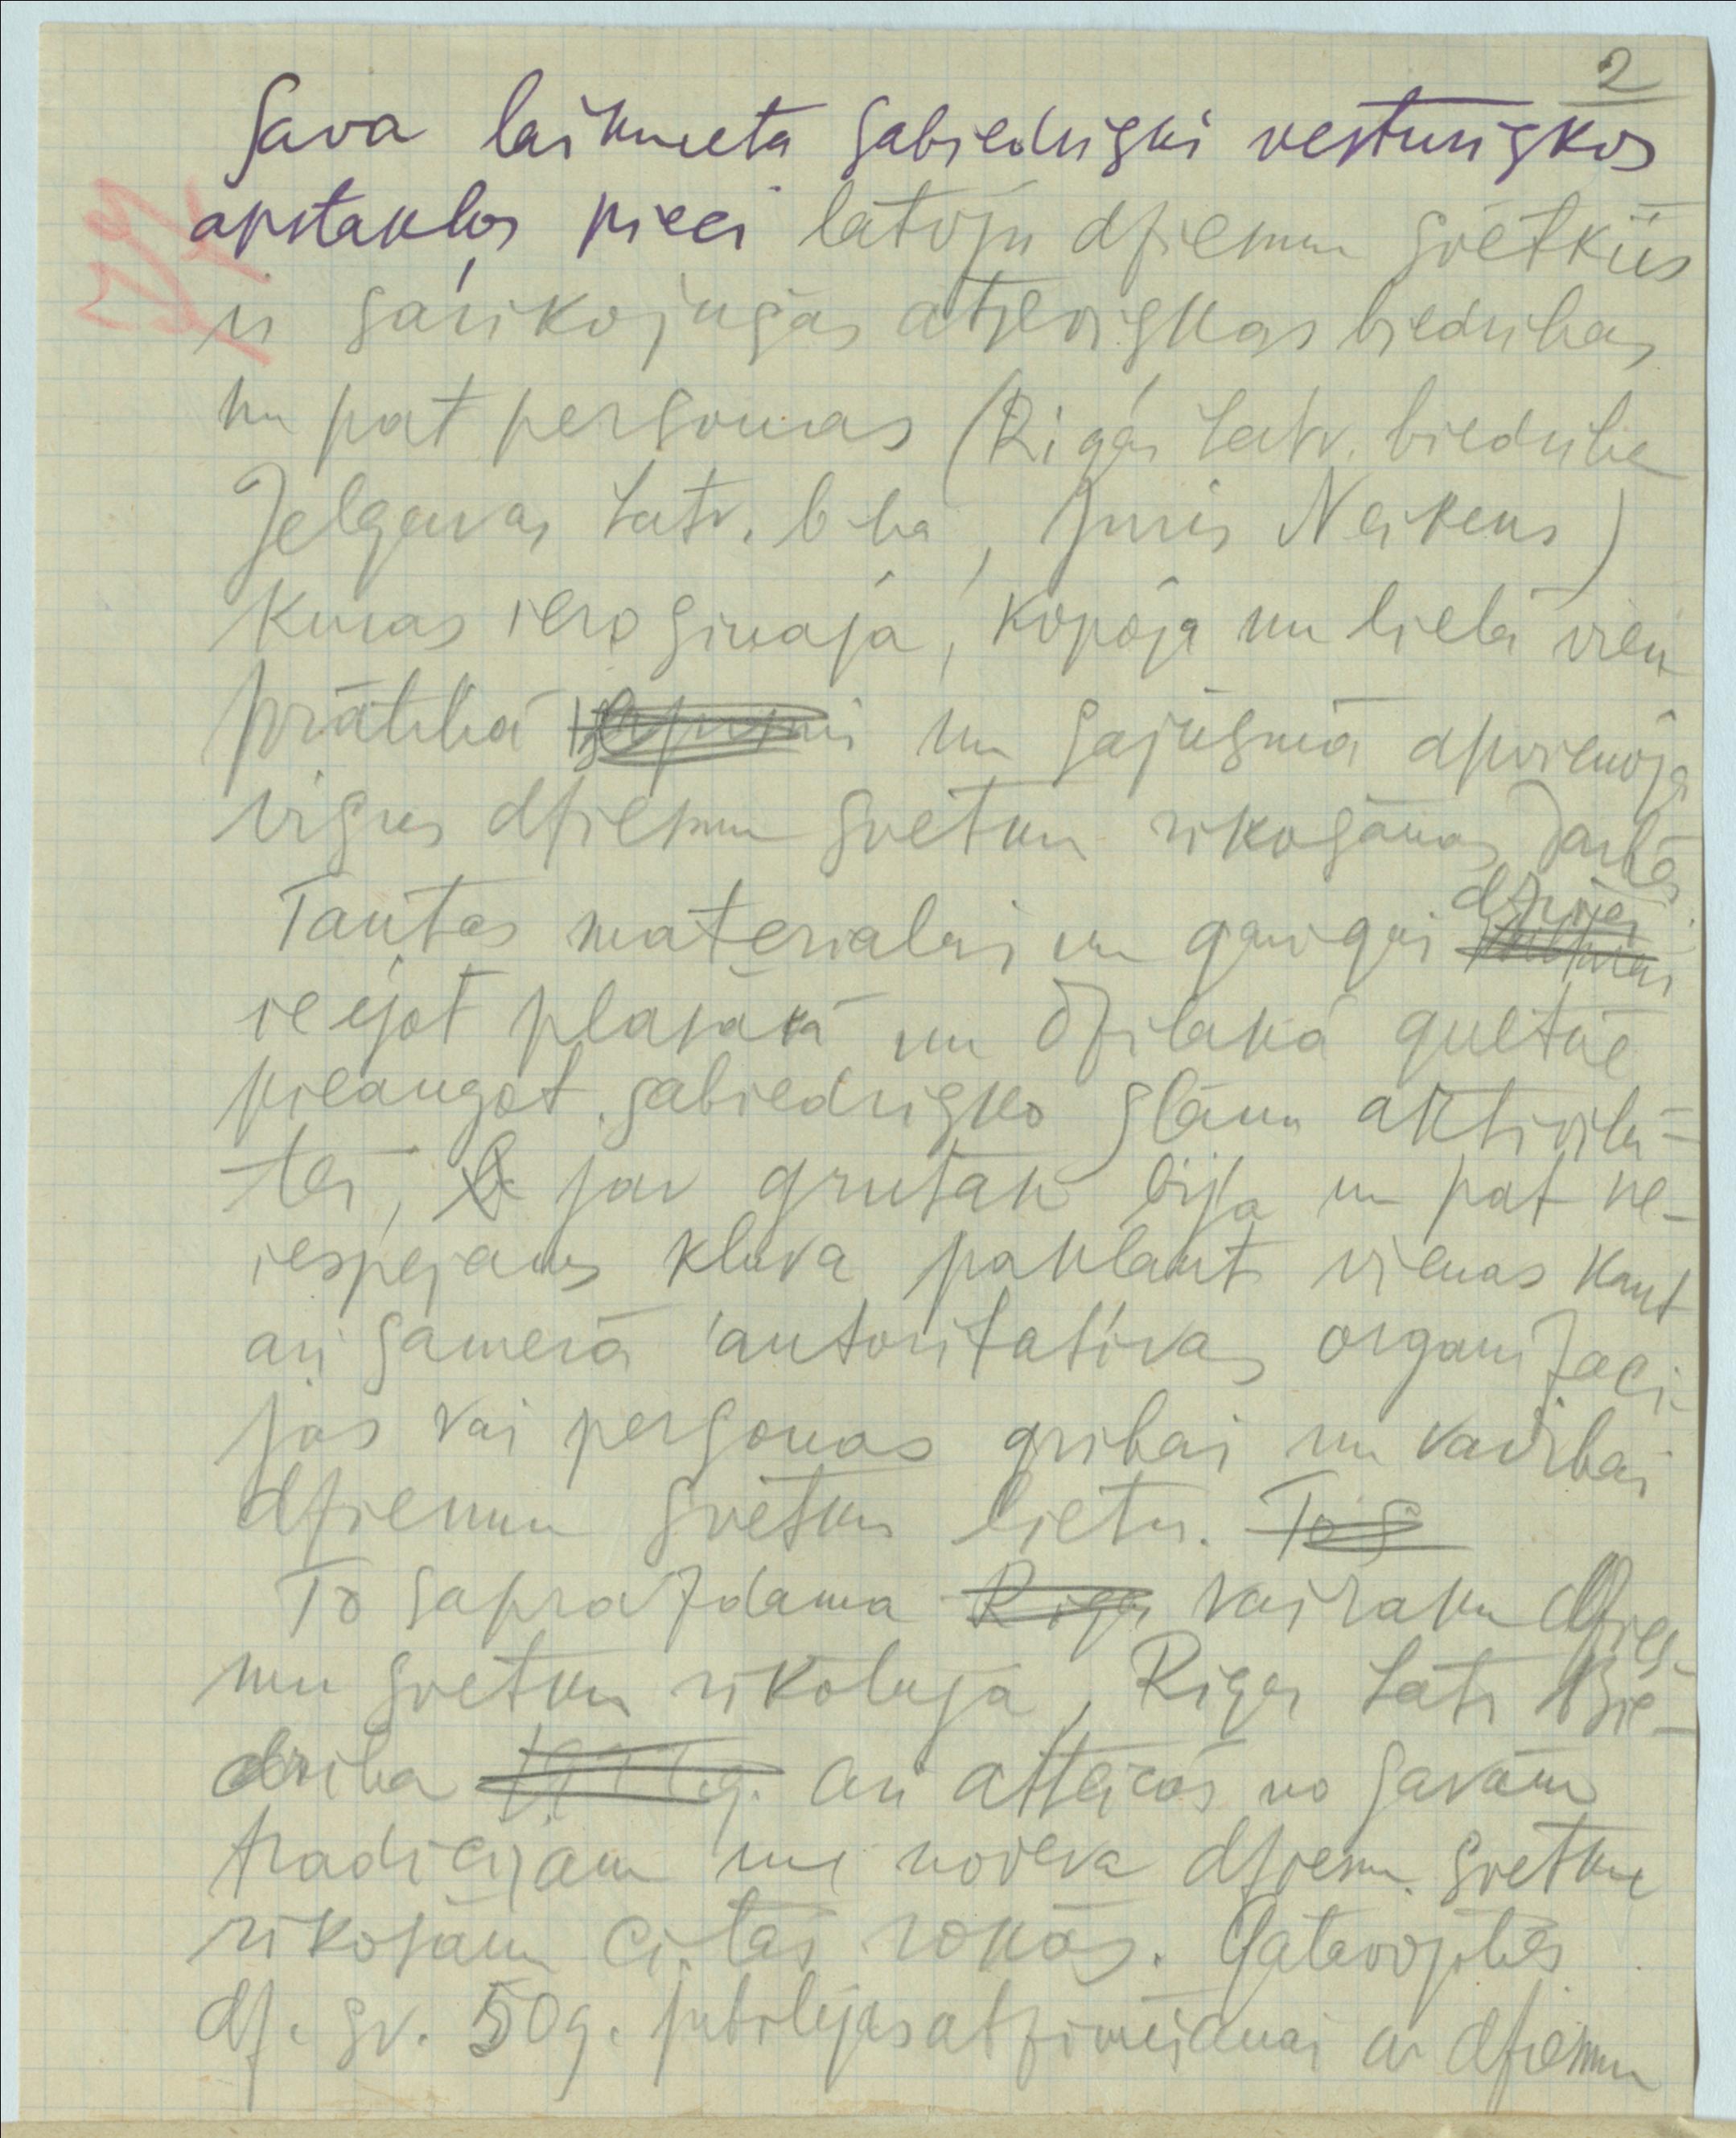 2
Sava laikmeta sabiedriski vesturiskos
apstakļos pieci latvju dziesmu svētkus
ir sarīkojušas atsevišķas biedribas
un pat personas (Rigas Latv. biedriba
Jelgavas Latv. b-ba, Juris Neikens)
kuras ierosinaja, kopoja un lielā vien
prātibā un sajūsmā apvienoja
visus dziesmu svetku rikošanas darbā.
Tautas materialai un garigai dzivei
ieejot plašakā un dziļakā gultnē
pieaugot sabiedrisko slāņu aktivitā-
tei, jau grutak bija un pat ne-
iespejams kluva pakļaut vienas kaut
ari samerā autoritativas organizaci-
jas vai personas gribai un vadibai
dziesmu svētku lietu. To s
To saprazdama Riga vairaku dzies-
mu svetku rikotaja, Rigas Latv Bie-
driba ari atteicās no savām
tradicijam un nodeva dziesm. svetku
rikošanu citās rokās. Gatavojoties
dz. sv. 50 g. jubilejas atzimešanai ar dziesmu